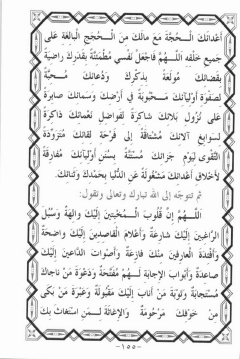 أَعْدَائِكَ الْحُجَّةَ مَعَ مَالَكَ مِنَ الْحُجَجِ الْبَالِغَةِ عَلَى
جَمِيعِ خَلْقِهِ اَللّٰهُمَّ فَاجْعَلْ نَفْسِي مُطْمَئِنَّةً بِقَدَرِكَ رَاضِيَةً
بِقَضَائِكَ مُولَعَةً بِذِكْرِكَ وَدُعَائِكَ مُحِبَّةً
لِصَفْوَةِ أَوْلِيَائِكَ مَحْبُوبَةً فِي أَرْضِكَ وَسَمَائِكَ صَابِرَةً
عَلَى نُزُولِ بَلَائِكَ شَاكِرَةً لِفَوَاضِلِ نَعْمَائِكَ ذَاكِرَةً
لِسَوَابِغِ آلَائِكَ مُشْتَاقَةً إِلَى فَرْحَةِ لِقَائِكَ مُتَزَوِّدَةً
التَّقْوَى لِيَوْمِ جَزَائِكَ مُسْتَنَّةً بِسُنَنِ أَوْلِيَائِكَ مُفَارِقَةً
لِأَخْلَاقِ أَعْدَائِكَ مَشْغُولَةً عَنِ الدُّنْيَا بِحَمْدِكَ وَثَنَائِكَ.
ثم تتوجّه إلى الله تبارك وتعالى وتقول:
اَللّٰهُمَّ إِنَّ قُلُوبَ الْمُخْبِتِينَ إِلَيْكَ وَالِهَةٌ وَسُبُلَ
الرَّاغِبِينَ إِلَيْكَ شَارِعَةٌ وَأَعْلَامَ الْقَاصِدِينَ إِلَيْكَ وَاضِحَةٌ
وَأَفْئِدَةَ الْعَارِفِينَ مِنْكَ فَازِعَةٌ وَأَصْوَاتَ الدَّاعِينَ إِلَيْكَ
صَاعِدَةٌ وَأَبْوَابَ الْإِجَابَةِ لَهُمْ مُفَتَّحَةٌ وَدَعْوَةَ مَنْ نَاجَاكَ
مُسْتَجَابَةٌ وَتَوْبَةَ مَنْ أَنَابَ إِلَيْكَ مَقْبُولَةٌ وَعَبْرَةَ مَنْ بَكَى
مِنْ خَوْفِكَ مَرْحُومَةٌ وَالْإِغَاثَةَ لِمَنِ اسْتَغَاثَ بِكَ
-١٥٥-